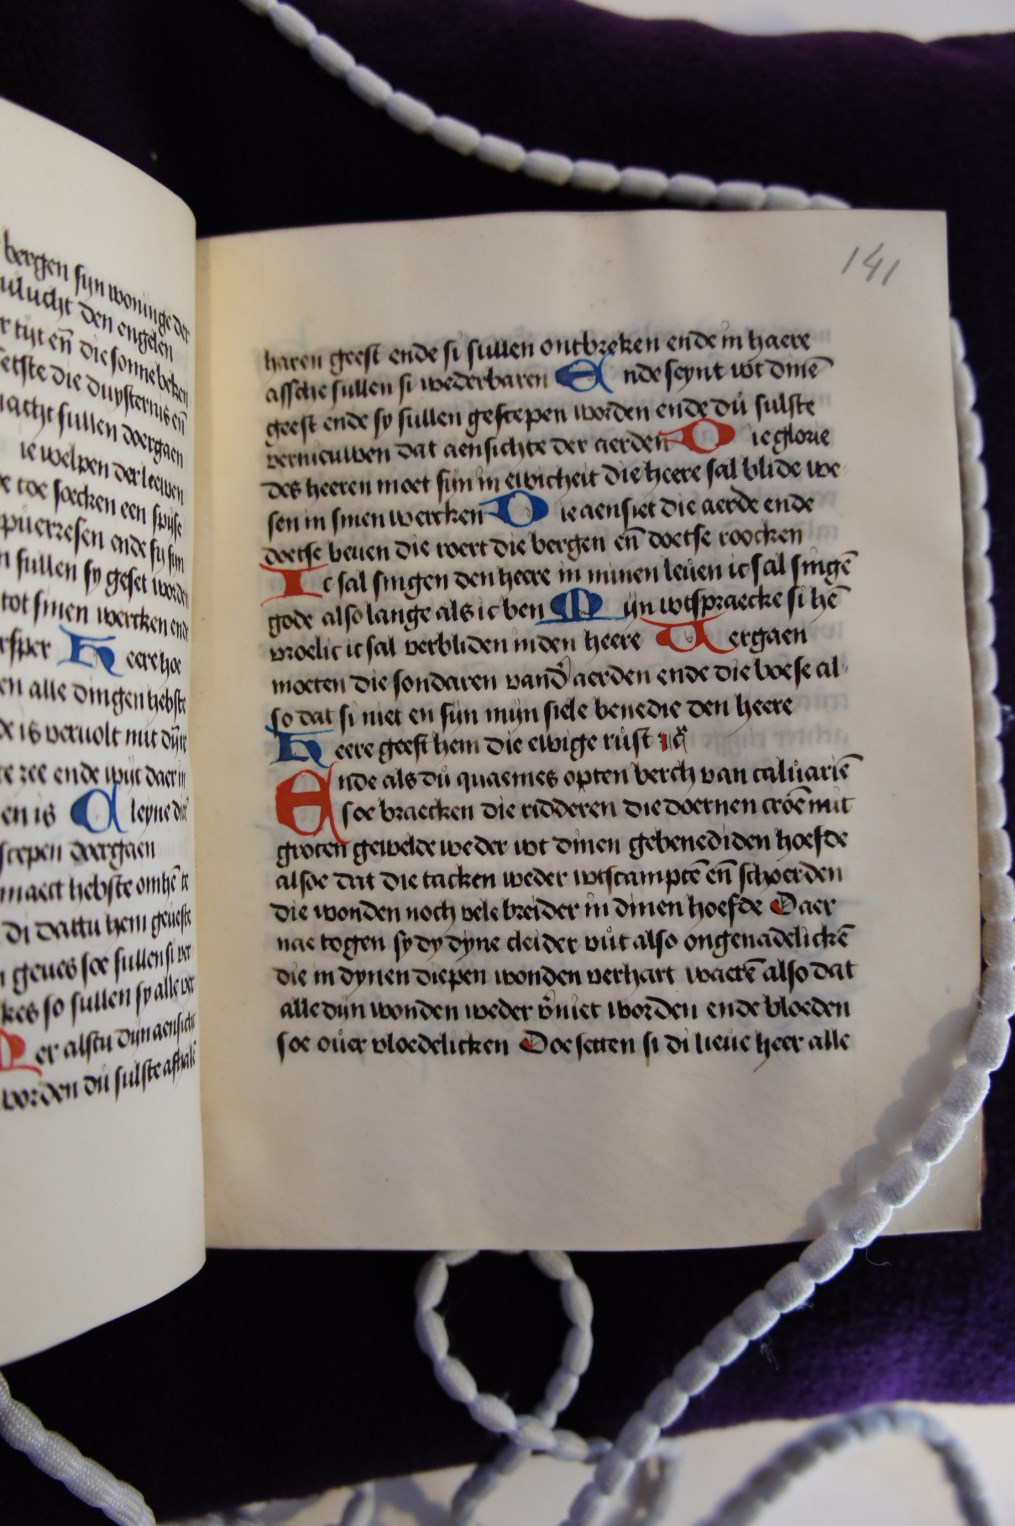 bergen sijn woninge der
vlucht den engelen
r tijt en̄ die sonne beken
setste die duysternis en̄
nacht sullen doergaen
ie welpen der leewen
e toe soecken een spijse
ende sy sijn
n sullen sy geset worden
tot sinen wercken ende
vesper Heere hoe
en alle dingen hebste
e is vervolt mit dijnr
ee zee ende wijt daer in
en is Aleyne dat
screpen doergaen
maect hebste om hē te
di dattu hem geveste
n geves soe sullen si ver
kes so sullen sy alle ver
Mer alstu dijn aensicht
worden du sulste afhalē
141
haren geest ende si sullen ontbreken ende in haere
assche sullen si wederbaren Ende seynt wt dinē
geest ende sy sullen gescepen worden ende dů sulste
vernieuwen dat aensichte der aerden Die glorie
des heeren moet sijn in ewicheit die heere sal blide we
sen in sinen wercken Die aensiet die aerde ende
doetse beven die roert die bergen en̄ doetse roocken
Ic sal singen den heere in minen leven ic sal singē
gode also lange als ic ben Mijn wtspraecke si hē
vroelic ic sal verbliden in den heere Vergaen
moeten die sondaren vand' aerden ende die boese al
so dat si niet en sijn mijn siele benedie den heere
Heere geeft hem die ewige růst
Ende als dů quaemes opten berch van calvariē
soe braecken die ridderen die doernen croē mit
groten gewelde weder wt dinen gebenediden hoefde
alsoe dat die tacken weder wtscamptē en̄ schoerden
die wonden noch vele breider in dinen hoefde Daer
nae togen sy dy dyne cleider vůt also ongenadelickē
die in dynen diepen wonden verhart waerē also dat
alle dijn wonden weder v'niet worden ende bloeden
soe ouer vloedelicken Doe setten si di lieve heer alle